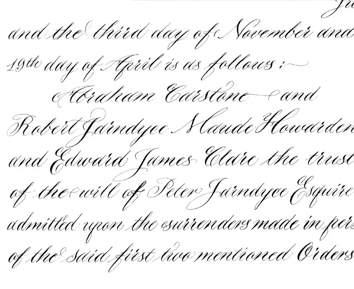 and the third day of November and
19th day of April is as follows:~
Abraham Carstone and
Robert Jarndyce Maude Howarden
and Edward James Clare the trust
of the will of Peter Jarndyce Esquire
admitted upon the surrenders made in pers
of the said first two mentioned Orders